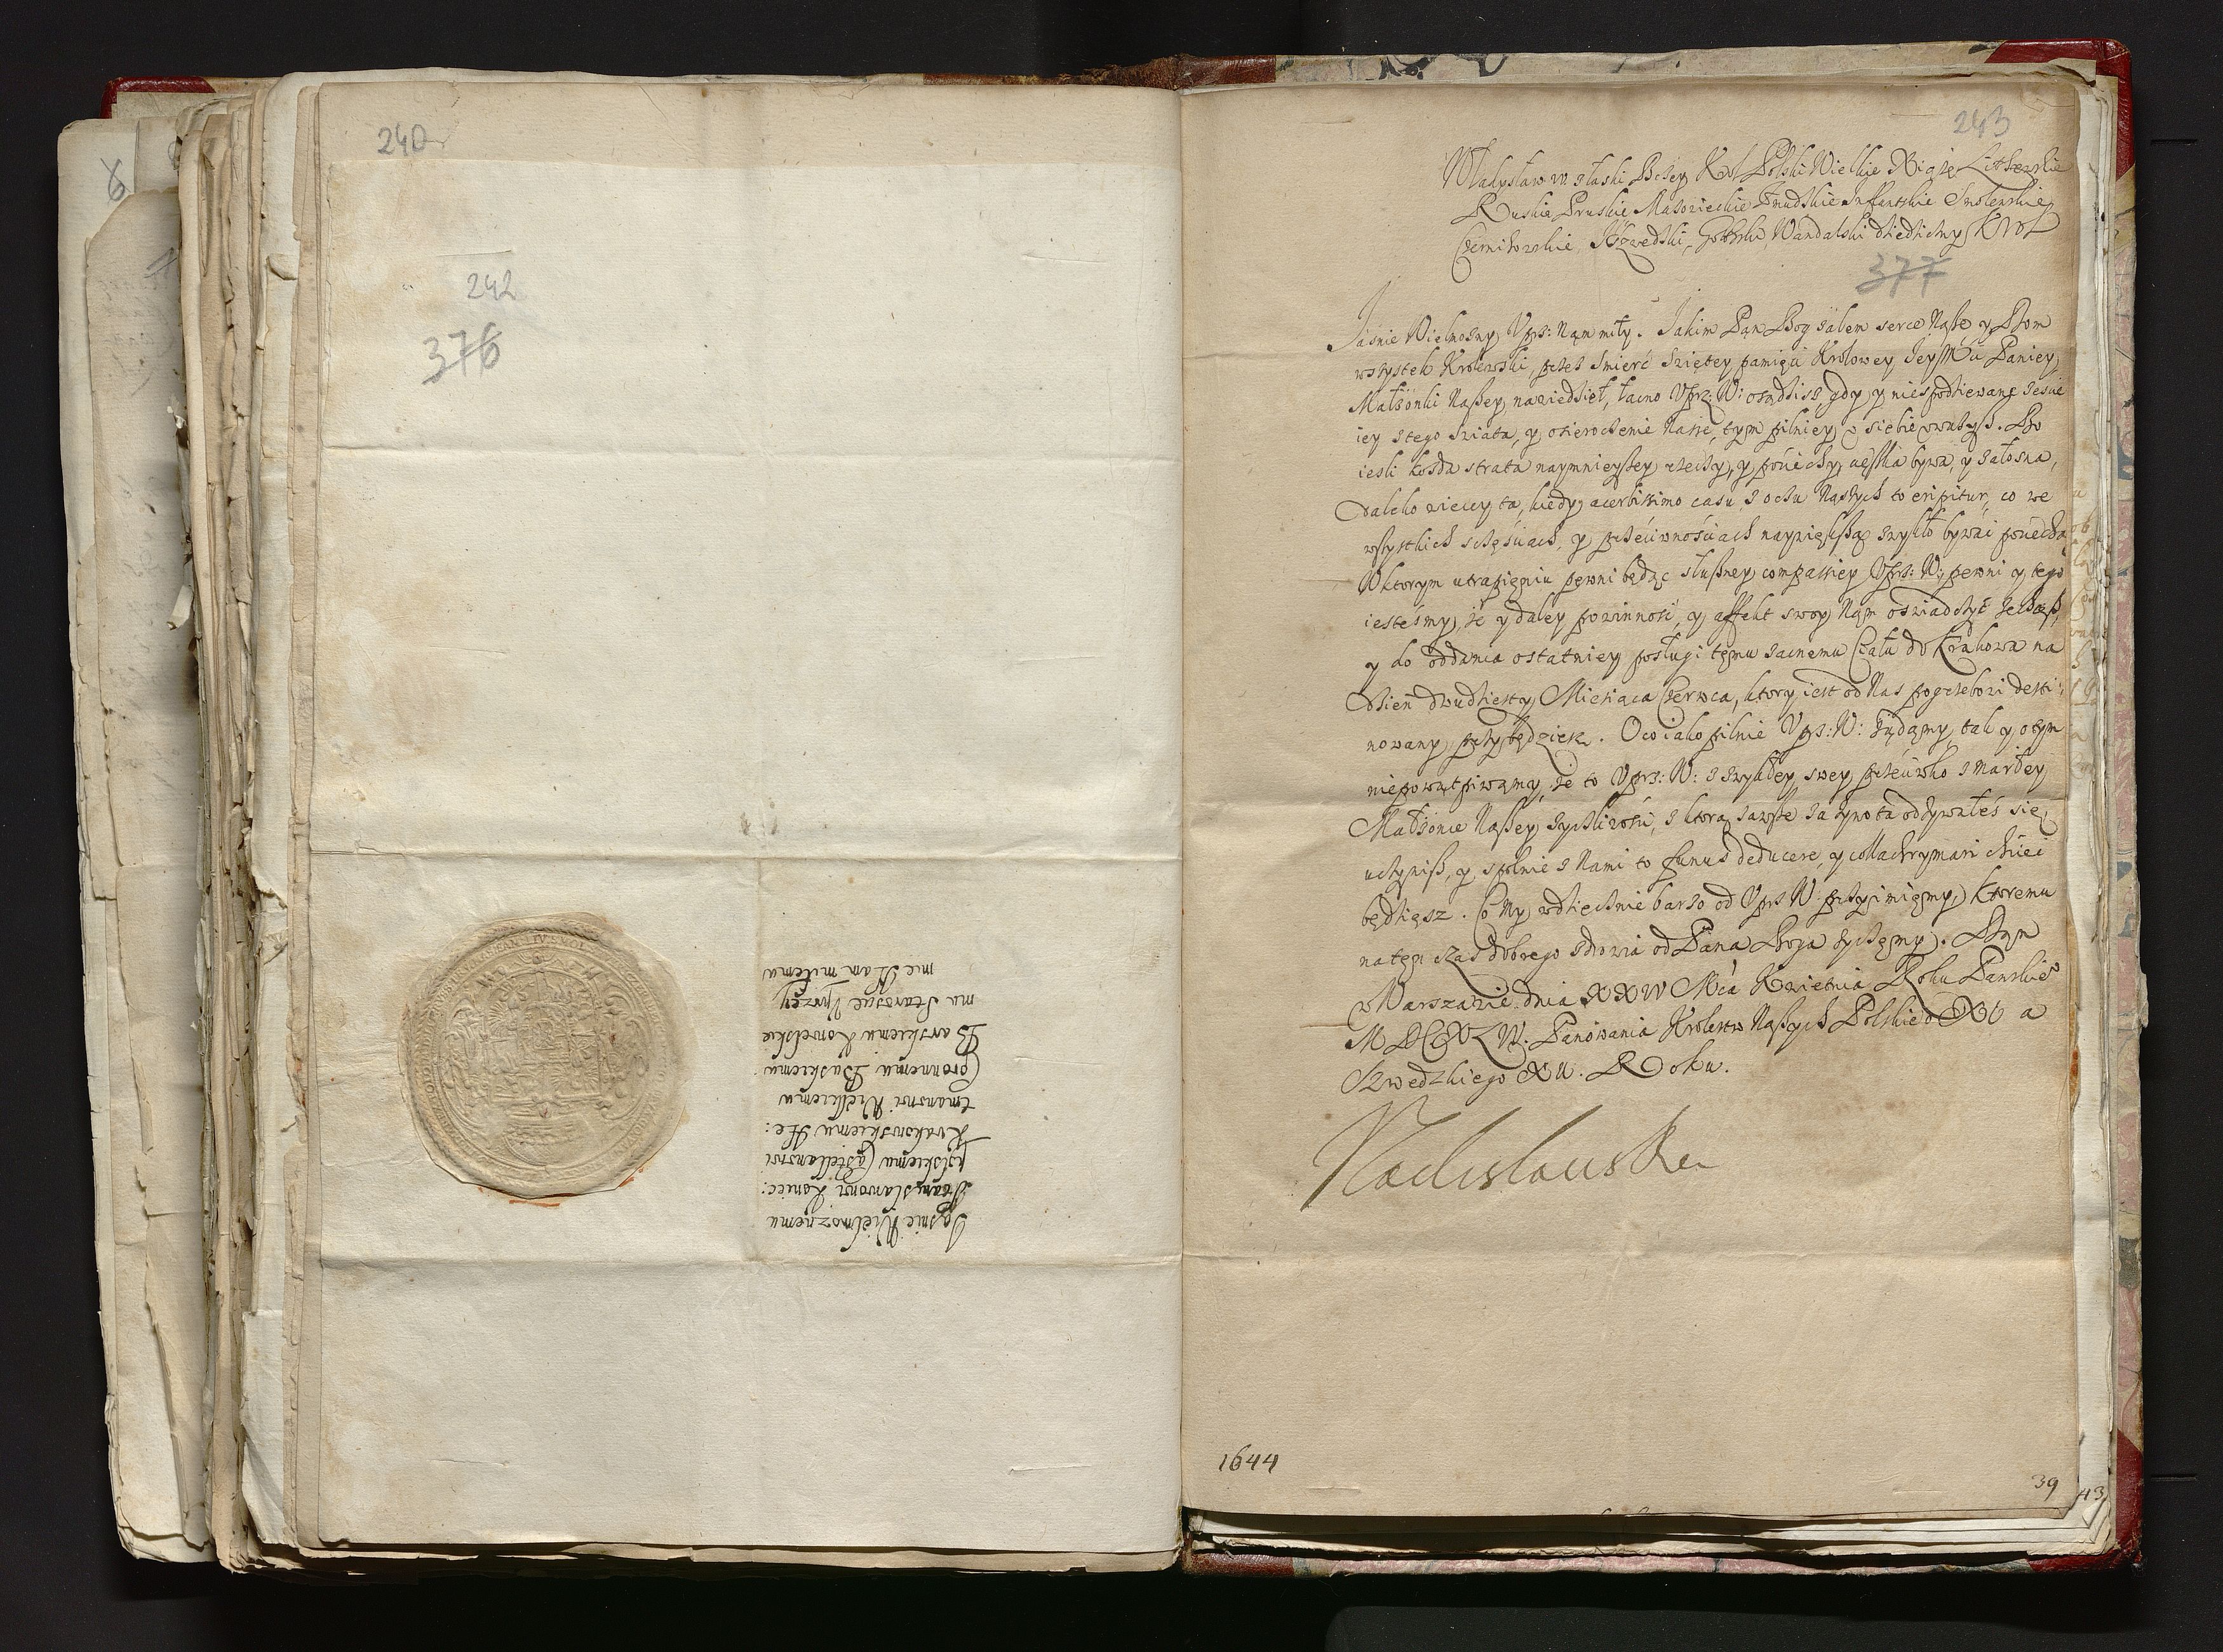 240
242
376
Jaśnie Wielmoznemu
Stanysławowi Koniec:
polskiemu Castellanowi
Krakowskiemu He:
tmanowi Wielkiemu
Coronnemu Buskiemu
Barskiemu Kowelskie
mu Staroście Uprzey
mie Nam miłemu
243
Władysław IV z łaski Bożey Krol Polski Wielkie Xiąże Lithewskie
Ruskie Pruskie Mazowieckie Żmudskie Inflantskie Smolenskie
Czernihowskie Szwedski, Gottski, Wandalski dziedziczny Krol
377
Jaśnie Wielmożny Uprz: Nam miły. Jakim Pan Bog żalem serce Nasze y Dom
wszystek Krolewski, przez śmierć Swiętey pamięci Krolowey Jey Mci Paniey
Małżonki Naszey nawiedził, łacno Uprz: W: osądzisz, gdy y niespodziewane zeście
iey z tego świata, y osierocenie nasze, tym pilniey u siebie uważysz. Bo
iesli kożda strata naymnieyszey rzeczy, y pociechy cięszka bywa, y żałosna,
daleko więcey ta, kiedy acerbissimo casu z oczu Naszych to eripitur, co we
wszystkich sczęściach, y przeciwnościach naywiększą zwykło bywać pociechą
W ktorym utrapieniu pewni będąc słuszney compassiey Uprz: W: pewni y tego
iestesmy, że y daley powinność, y affekt swoy Nam oswiadczyć zechcesz,
y do oddania ostatniey posługi temu zacnemu Ciału do Krakowa na
dzień dwudziesty Miesiąca Czerwca, ktory iest od Nas pogrzebowi desti:
nowany przybędziesz. O co iako pilnie Uprz: W: żądamy, tak y o tym
niepowątpiwamy, że to Uprz: W: z zwykłey swey przeciwko zmarłey
Małżonce Naszey życzliwości, z ktorą zawsze za żywota odzywałeś się,
uczynisz, y społnie z Nami to funus deducere, y collachrymari chcieć
będziesz. Co My wdzięcznie barzo od Uprz W przyimiemy, ktoremu
na ten czas dobrego zdrowia od Pana Boga życzemy. Dan
w Warszawie dnia XXIV Mca Kwietnia Roku Panskiego
M DC XLIV. Panowania Krolestw Naszych Polskiego XII a
Szwedzkiego XII. Roku.
Vladislaus Rex
1644
39
43